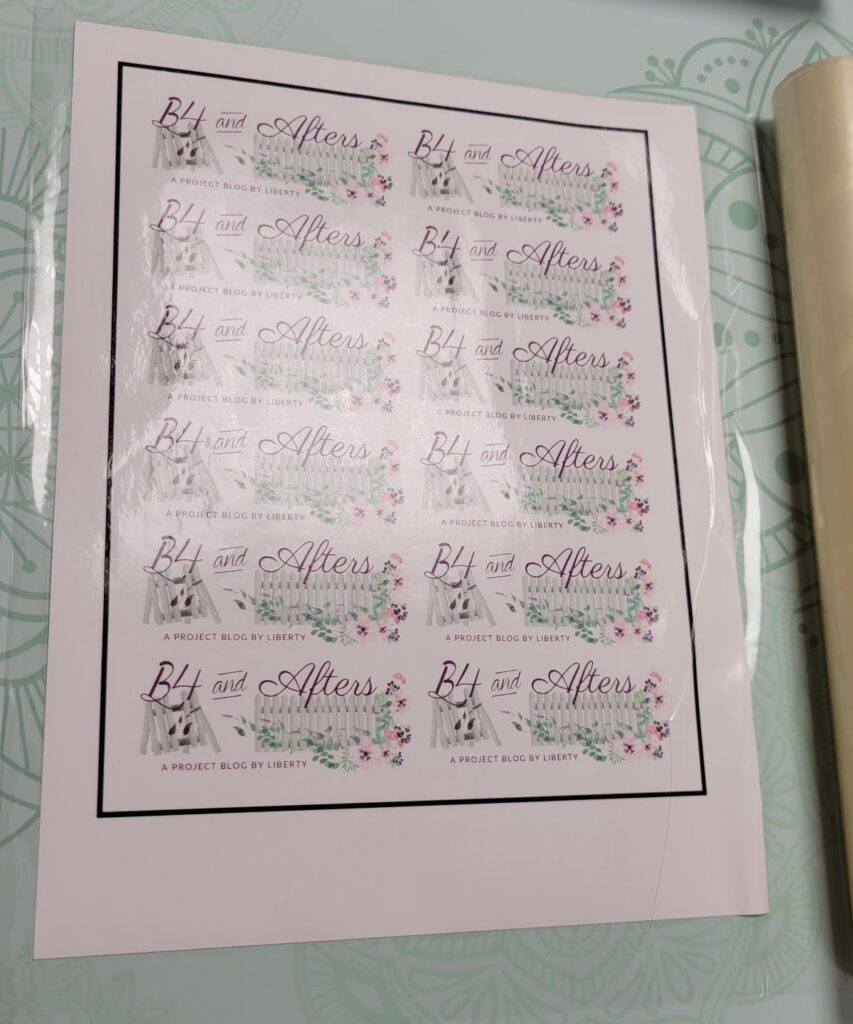 B4 and Afters
A PROJECT BLOG BY LIBERTY
B4 and Afters
A PROJECT BLOG BY LIBERTY
B4 and Afters
A PROJECT BLOG BY LIBERTY
B4 and Afters
A PROJECT BLOG BY LIBERTY
B4 and Afters
A PROJECT BLOG BY LIBERTY
B4 and Afters
A PROJECT BLOG BY LIBERTY
B4 and Afters
A PROJECT BLOG BY LIBERTY
B4 and Afters
A PROJECT BLOG BY LIBERTY
B4 and Afters
A PROJECT BLOG BY LIBERTY
B4 and Afters
A PROJECT BLOG BY LIBERTY
B4 and Afters
A PROJECT BLOG BY LIBERTY
B4 and Afters
A PROJECT BLOG BY LIBERTY